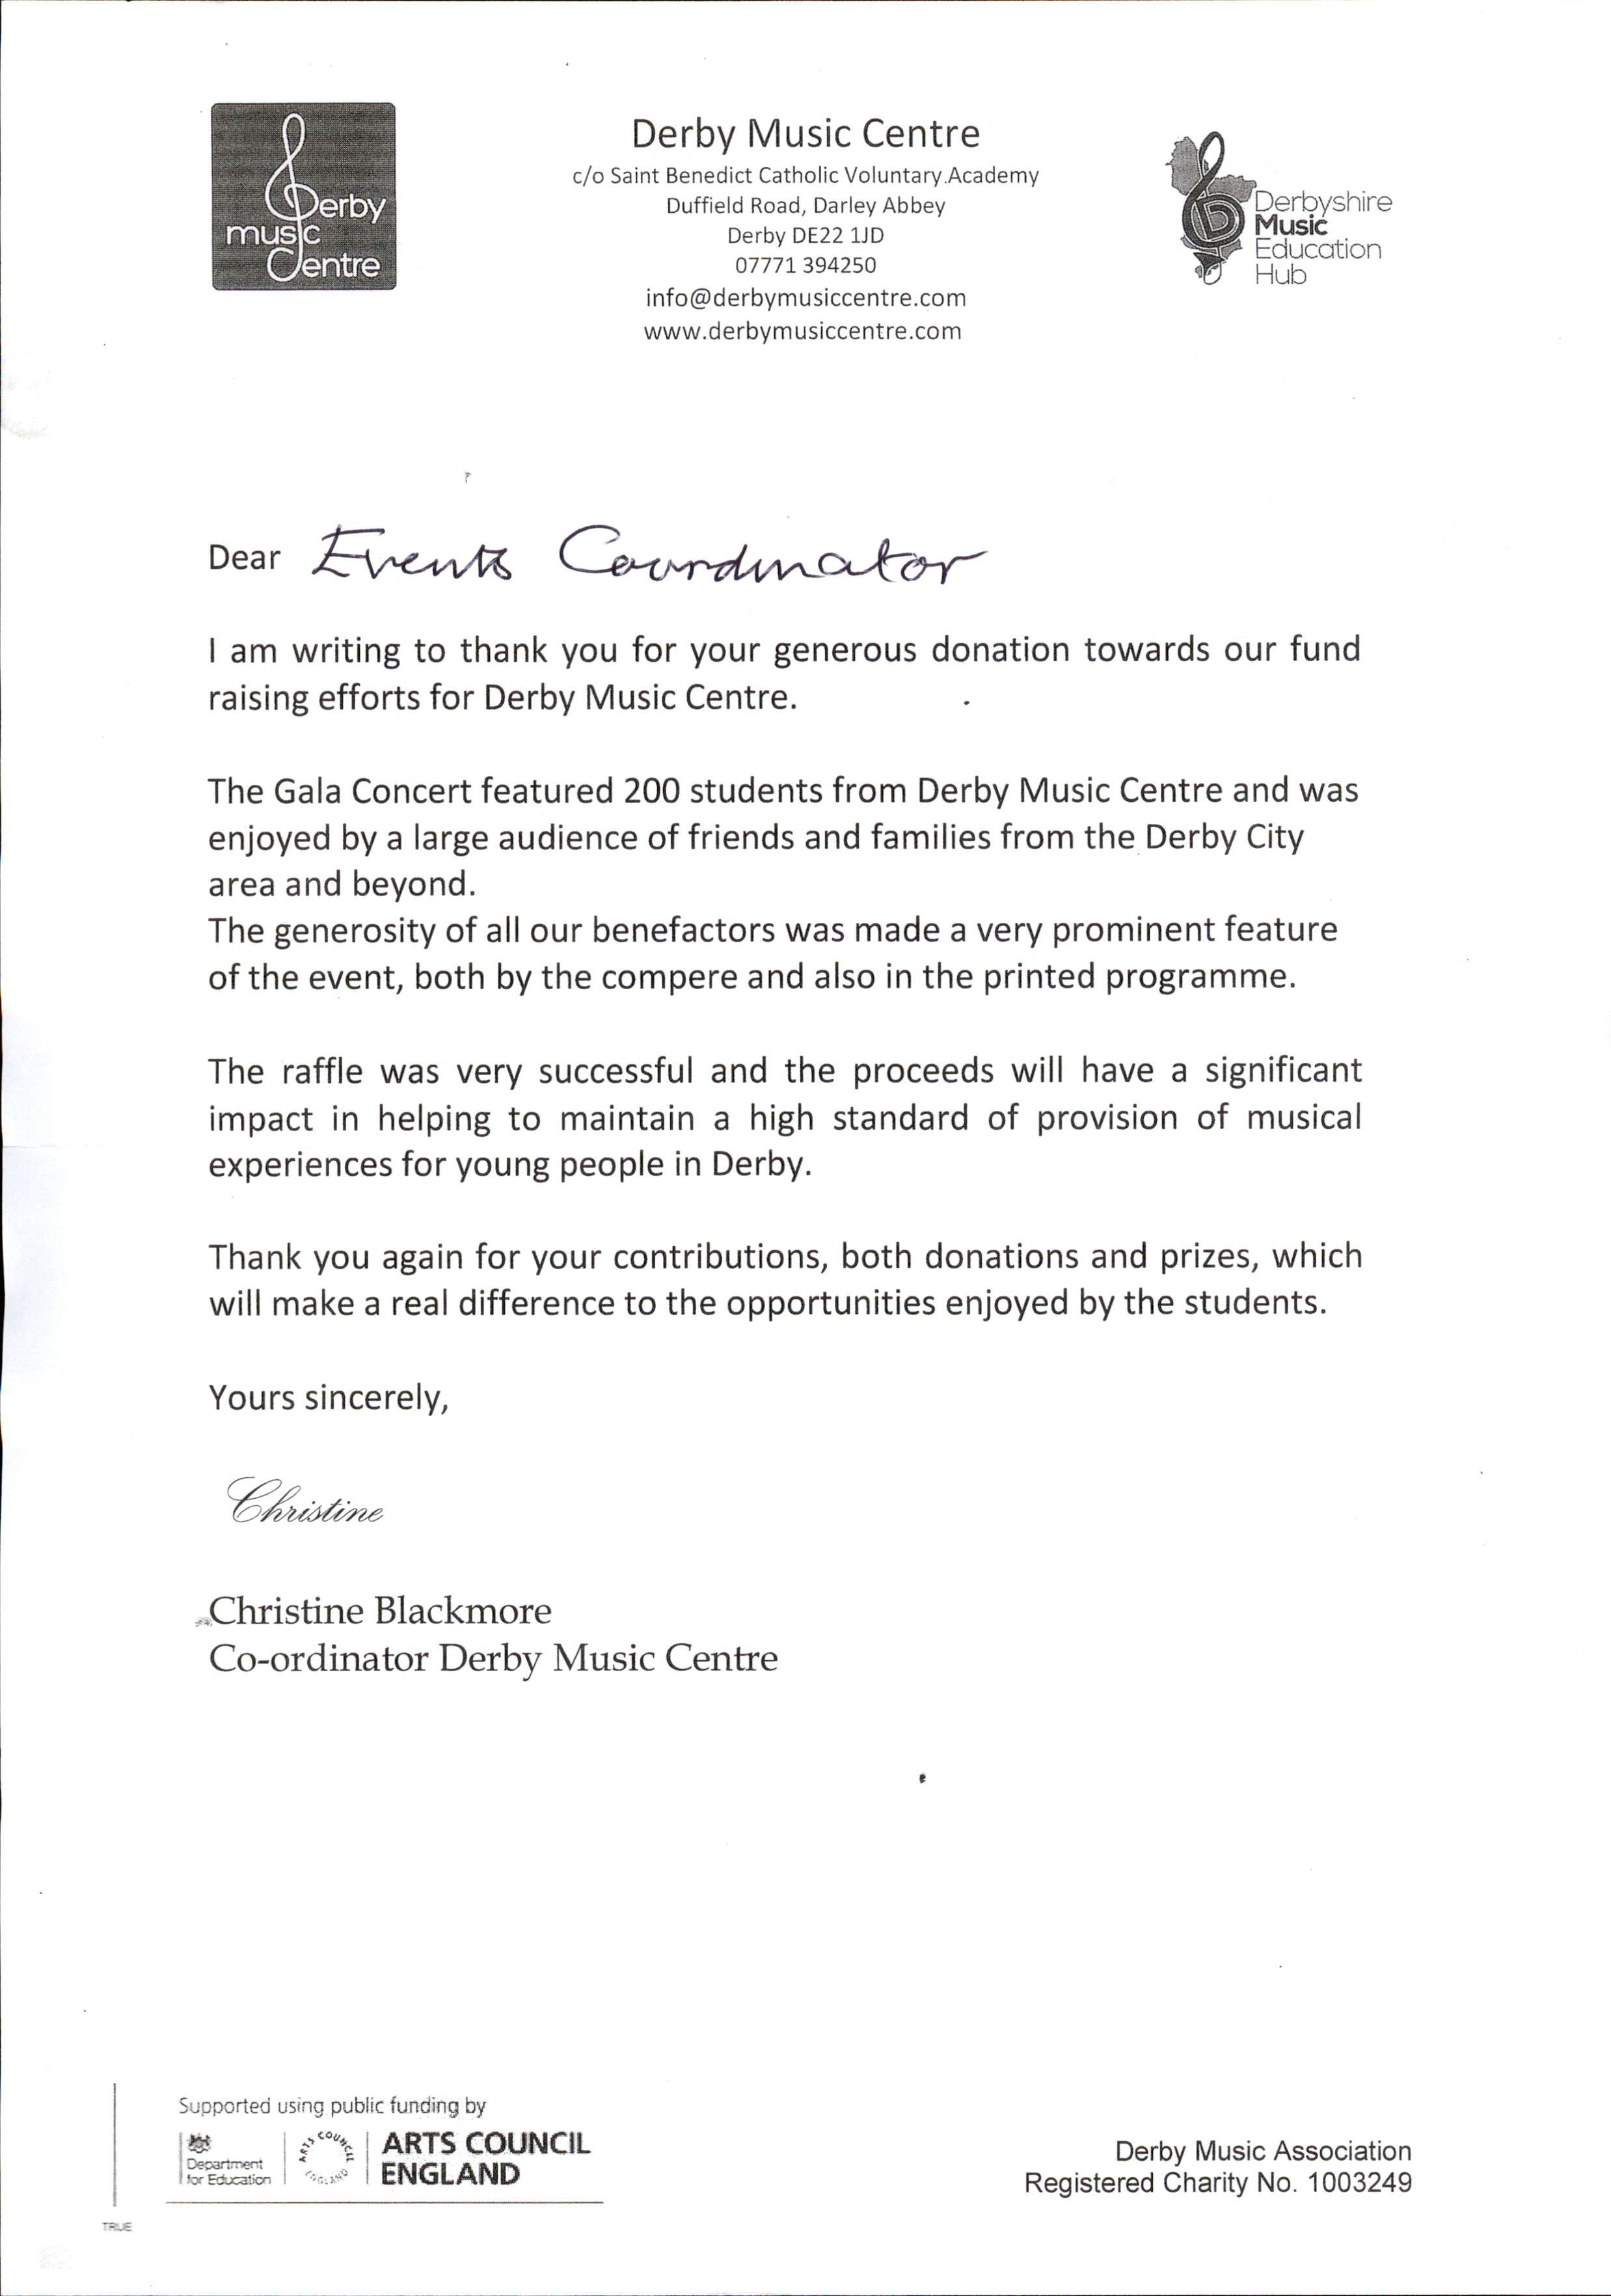 Derby
music
Centre
Derby Music Centre
c/o Saint Benedict Catholic Voluntary.Academy
Duffield Road, Darley Abbey
Derby DE22 1JD
07771 394250
info@derbymusiccentre.com
www.derbymusiccentre.com
Derbyshire
Music
Education
Hub
Dear Events Coordinator
I am writing to thank you for your generous donation towards our fund
raising efforts for Derby Music Centre.
The Gala Concert featured 200 students from Derby Music Centre and was
enjoyed by a large audience of friends and families from the Derby City
area and beyond.
The generosity of all our benefactors was made a very prominent feature
of the event, both by the compere and also in the printed programme.
The raffle was very successful and the proceeds will have a significant
impact in helping to maintain a high standard of provision of musical
experiences for young people in Derby.
Thank you again for your contributions, both donations and prizes, which
will make a real difference to the opportunities enjoyed by the students.
Yours sincerely,
Christine
Christine Blackmore
Co-ordinator Derby Music Centre
Supported using public funding by
Department
for Education
ARTS COUNCIL
ENGLAND
ARTS COUNCIL
ENGLAND
Derby Music Association
Registered Charity No. 1003249
TRUE